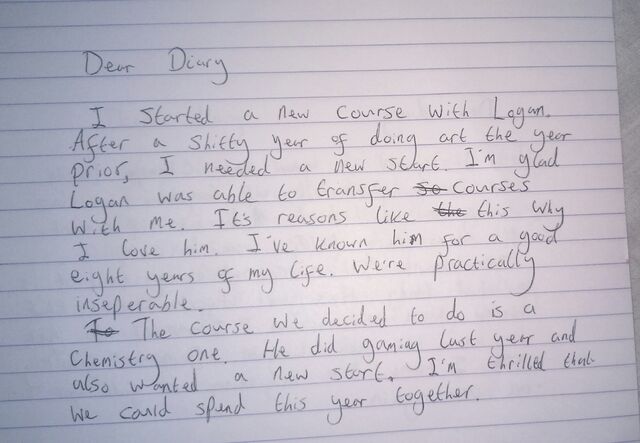 Dear Diary
I started a new course with Logan.
After a shitty year of doing art the year
prior, I needed a new start. I'm glad
Logan was able to transfer so courses
with me. It's reasons like the this why
I love him. I've known him for a good
eight years of my life. We're practically
inseperable.
To The course we decided to do is a
Chemistry one. He did gaming last year and
also wanted a new start. I'm thrilled that
we could spend this year together.